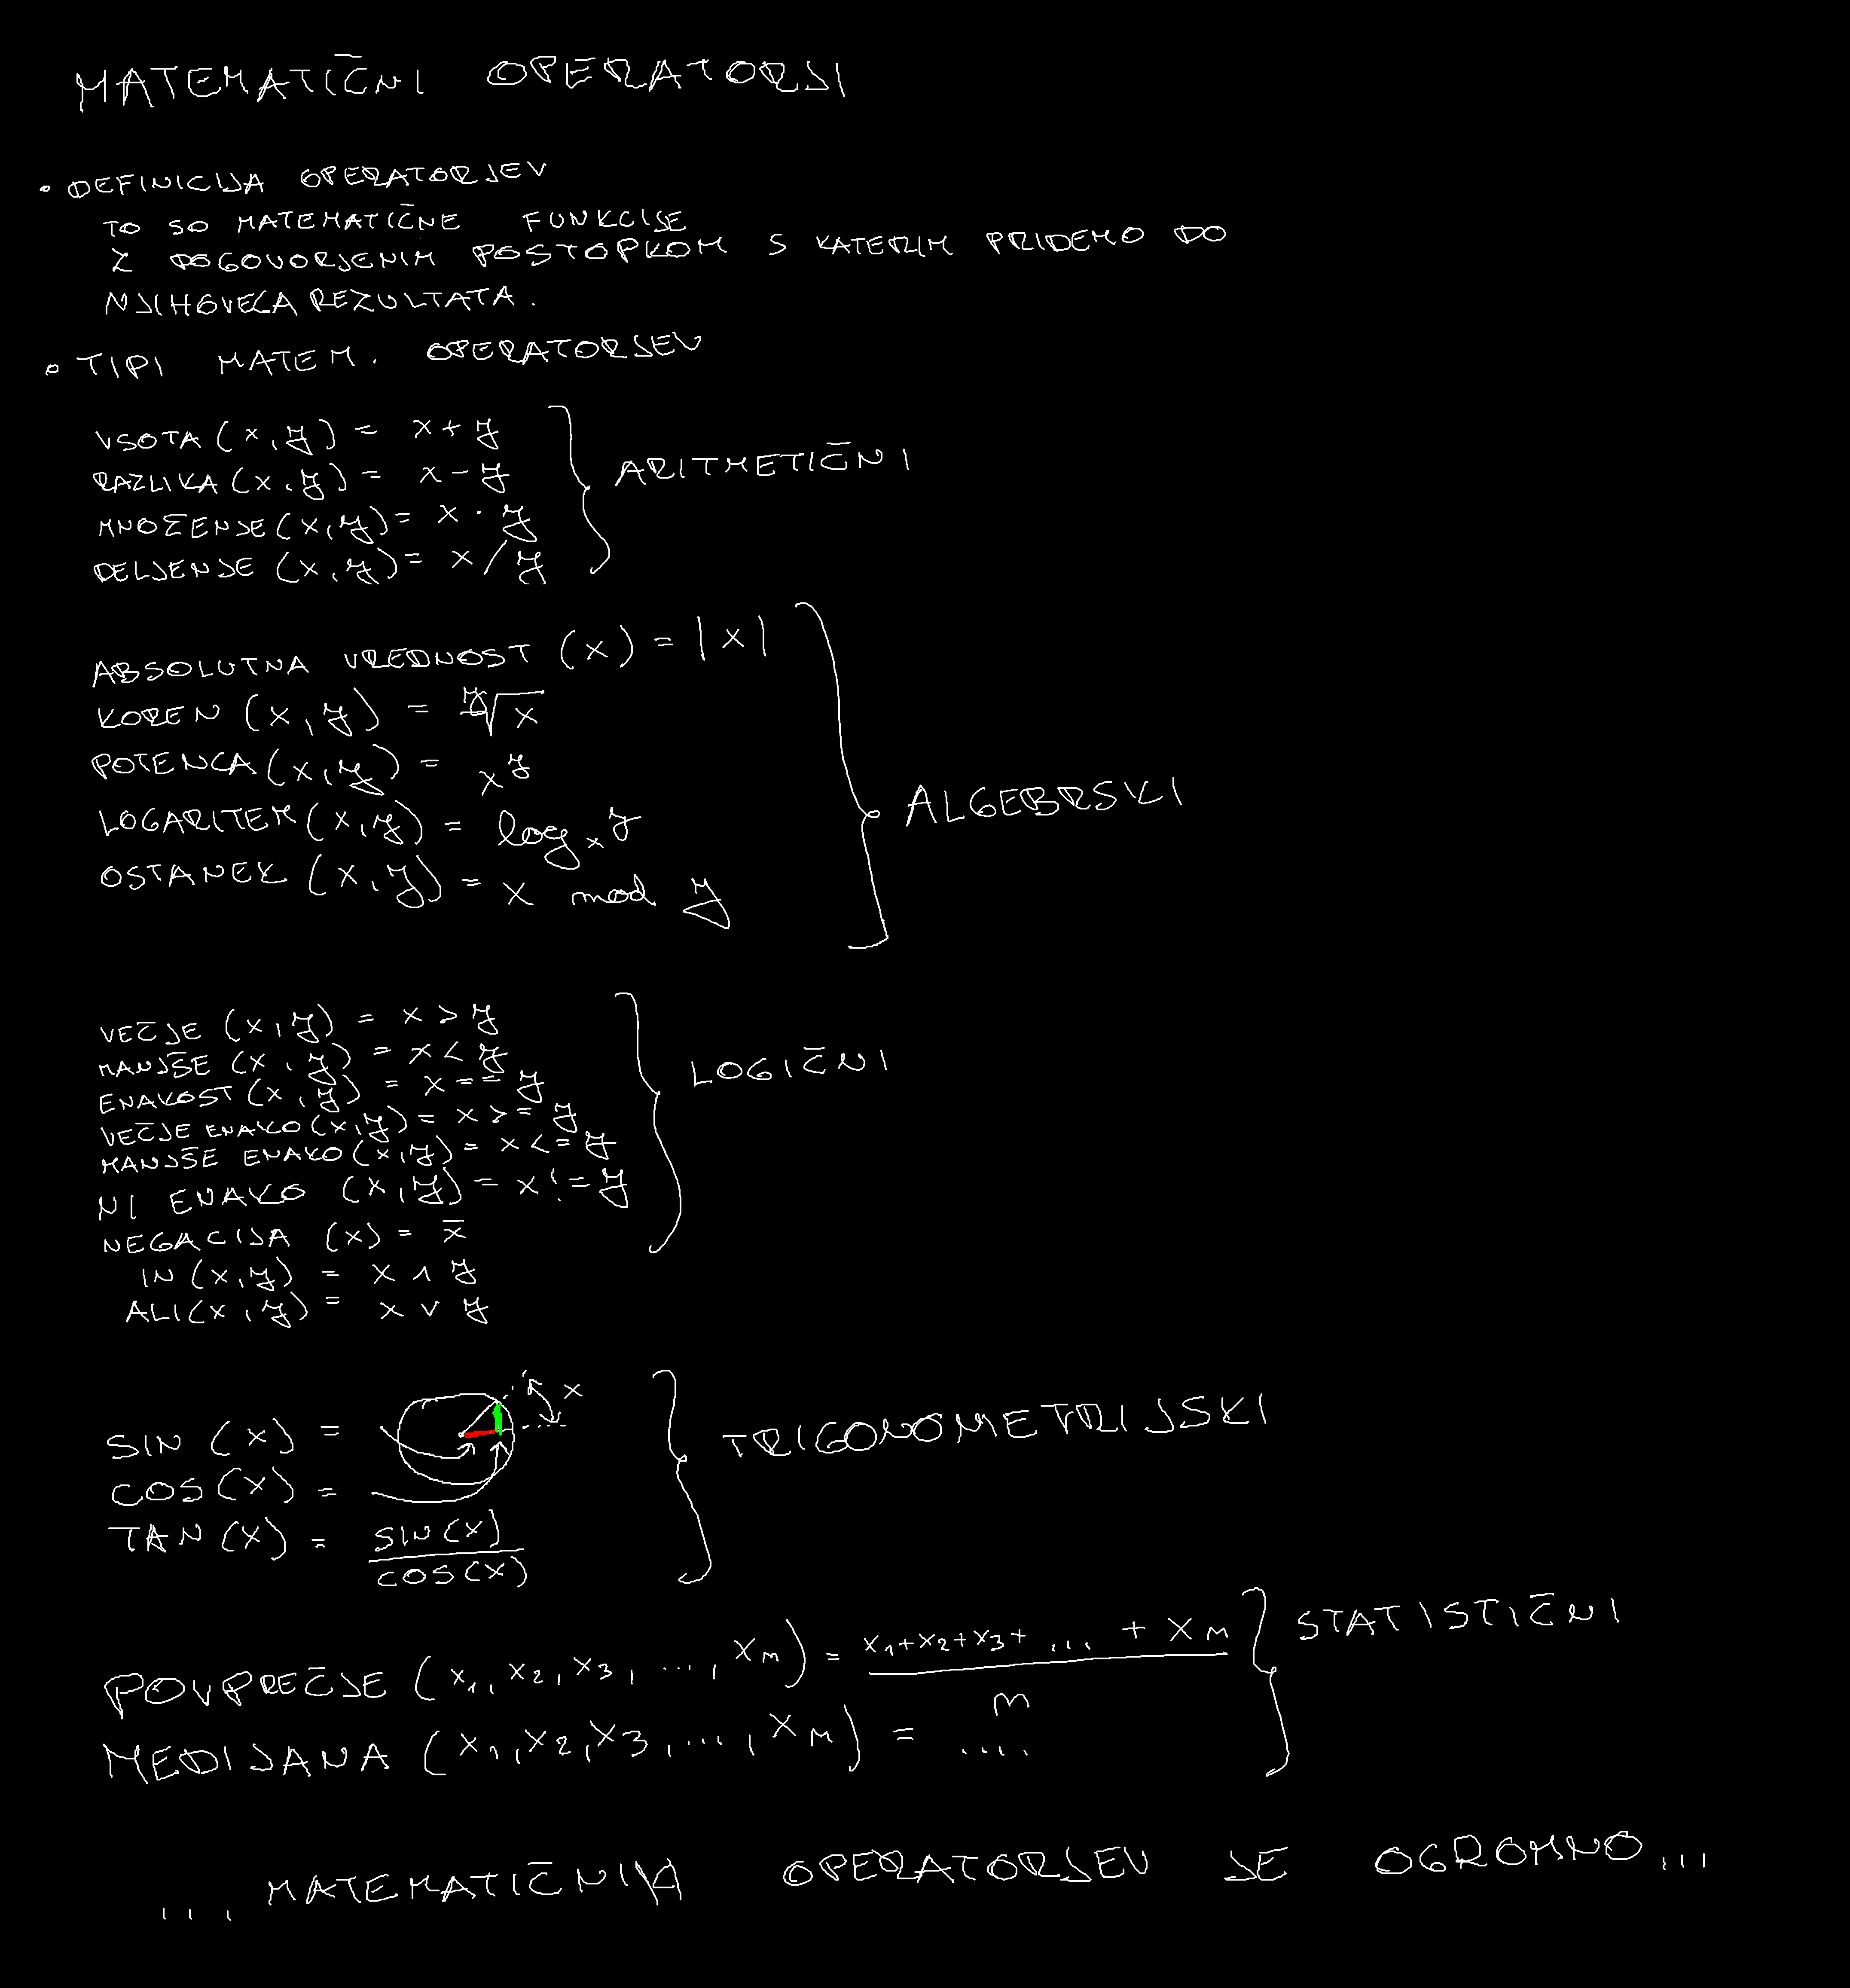 MATEMATIČNI OPERATORJI
• DEFINICIJA OPERATORJEV
TO SO MATEMATIČNE FUNKCIJE
Z DOGOVORJENIM POSTOPKOM S KATERIM PRIDEMO DO
NJIHOVEGA REZULTATA.
• TIPI MATEM. OPERATORJEV
VSOTA (x,y) = x + y
RAZLIKA (x,y) = x - y
ARITMETIČNI
MNOŽENJE (x,y) = x · y
DELJENJE (x,y) = x / y
ABSOLUTNA VREDNOST (x) = |x|
KOREN (x,y) = ʸ√x
POTENCA (x,y) = xʸ
ALGEBRSKI
LOGARITEM (x,y) = logₓ y
OSTANEK (x,y) = x mod y
VEČJE (x,y) = x > y
MANJŠE (x,y) = x < y
LOGIČNI
ENAKOST (x,y) = x == y
VEČJE ENAKO (x,y) = x >= y
MANJŠE ENAKO (x,y) = x <= y
NI ENAKO (x,y) = x != y
NEGACIJA (x) = x̅
IN (x,y) = x ∧ y
ALI (x,y) = x ∨ y
x
SIN (x) =
TRIGONOMETRIJSKI
COS (x) =
TAN (x) = SIN(x) / COS(x)
STATISTIČNI
POVPREČJE (x₁, x₂, x₃, ..., xₙ) = x₁+x₂+x₃+ ... + xₙ / n
MEDIJANA (x₁, x₂, x₃, ..., xₙ) = ....
... MATEMATIČNIH OPERATORJEV JE OGROMNO ...